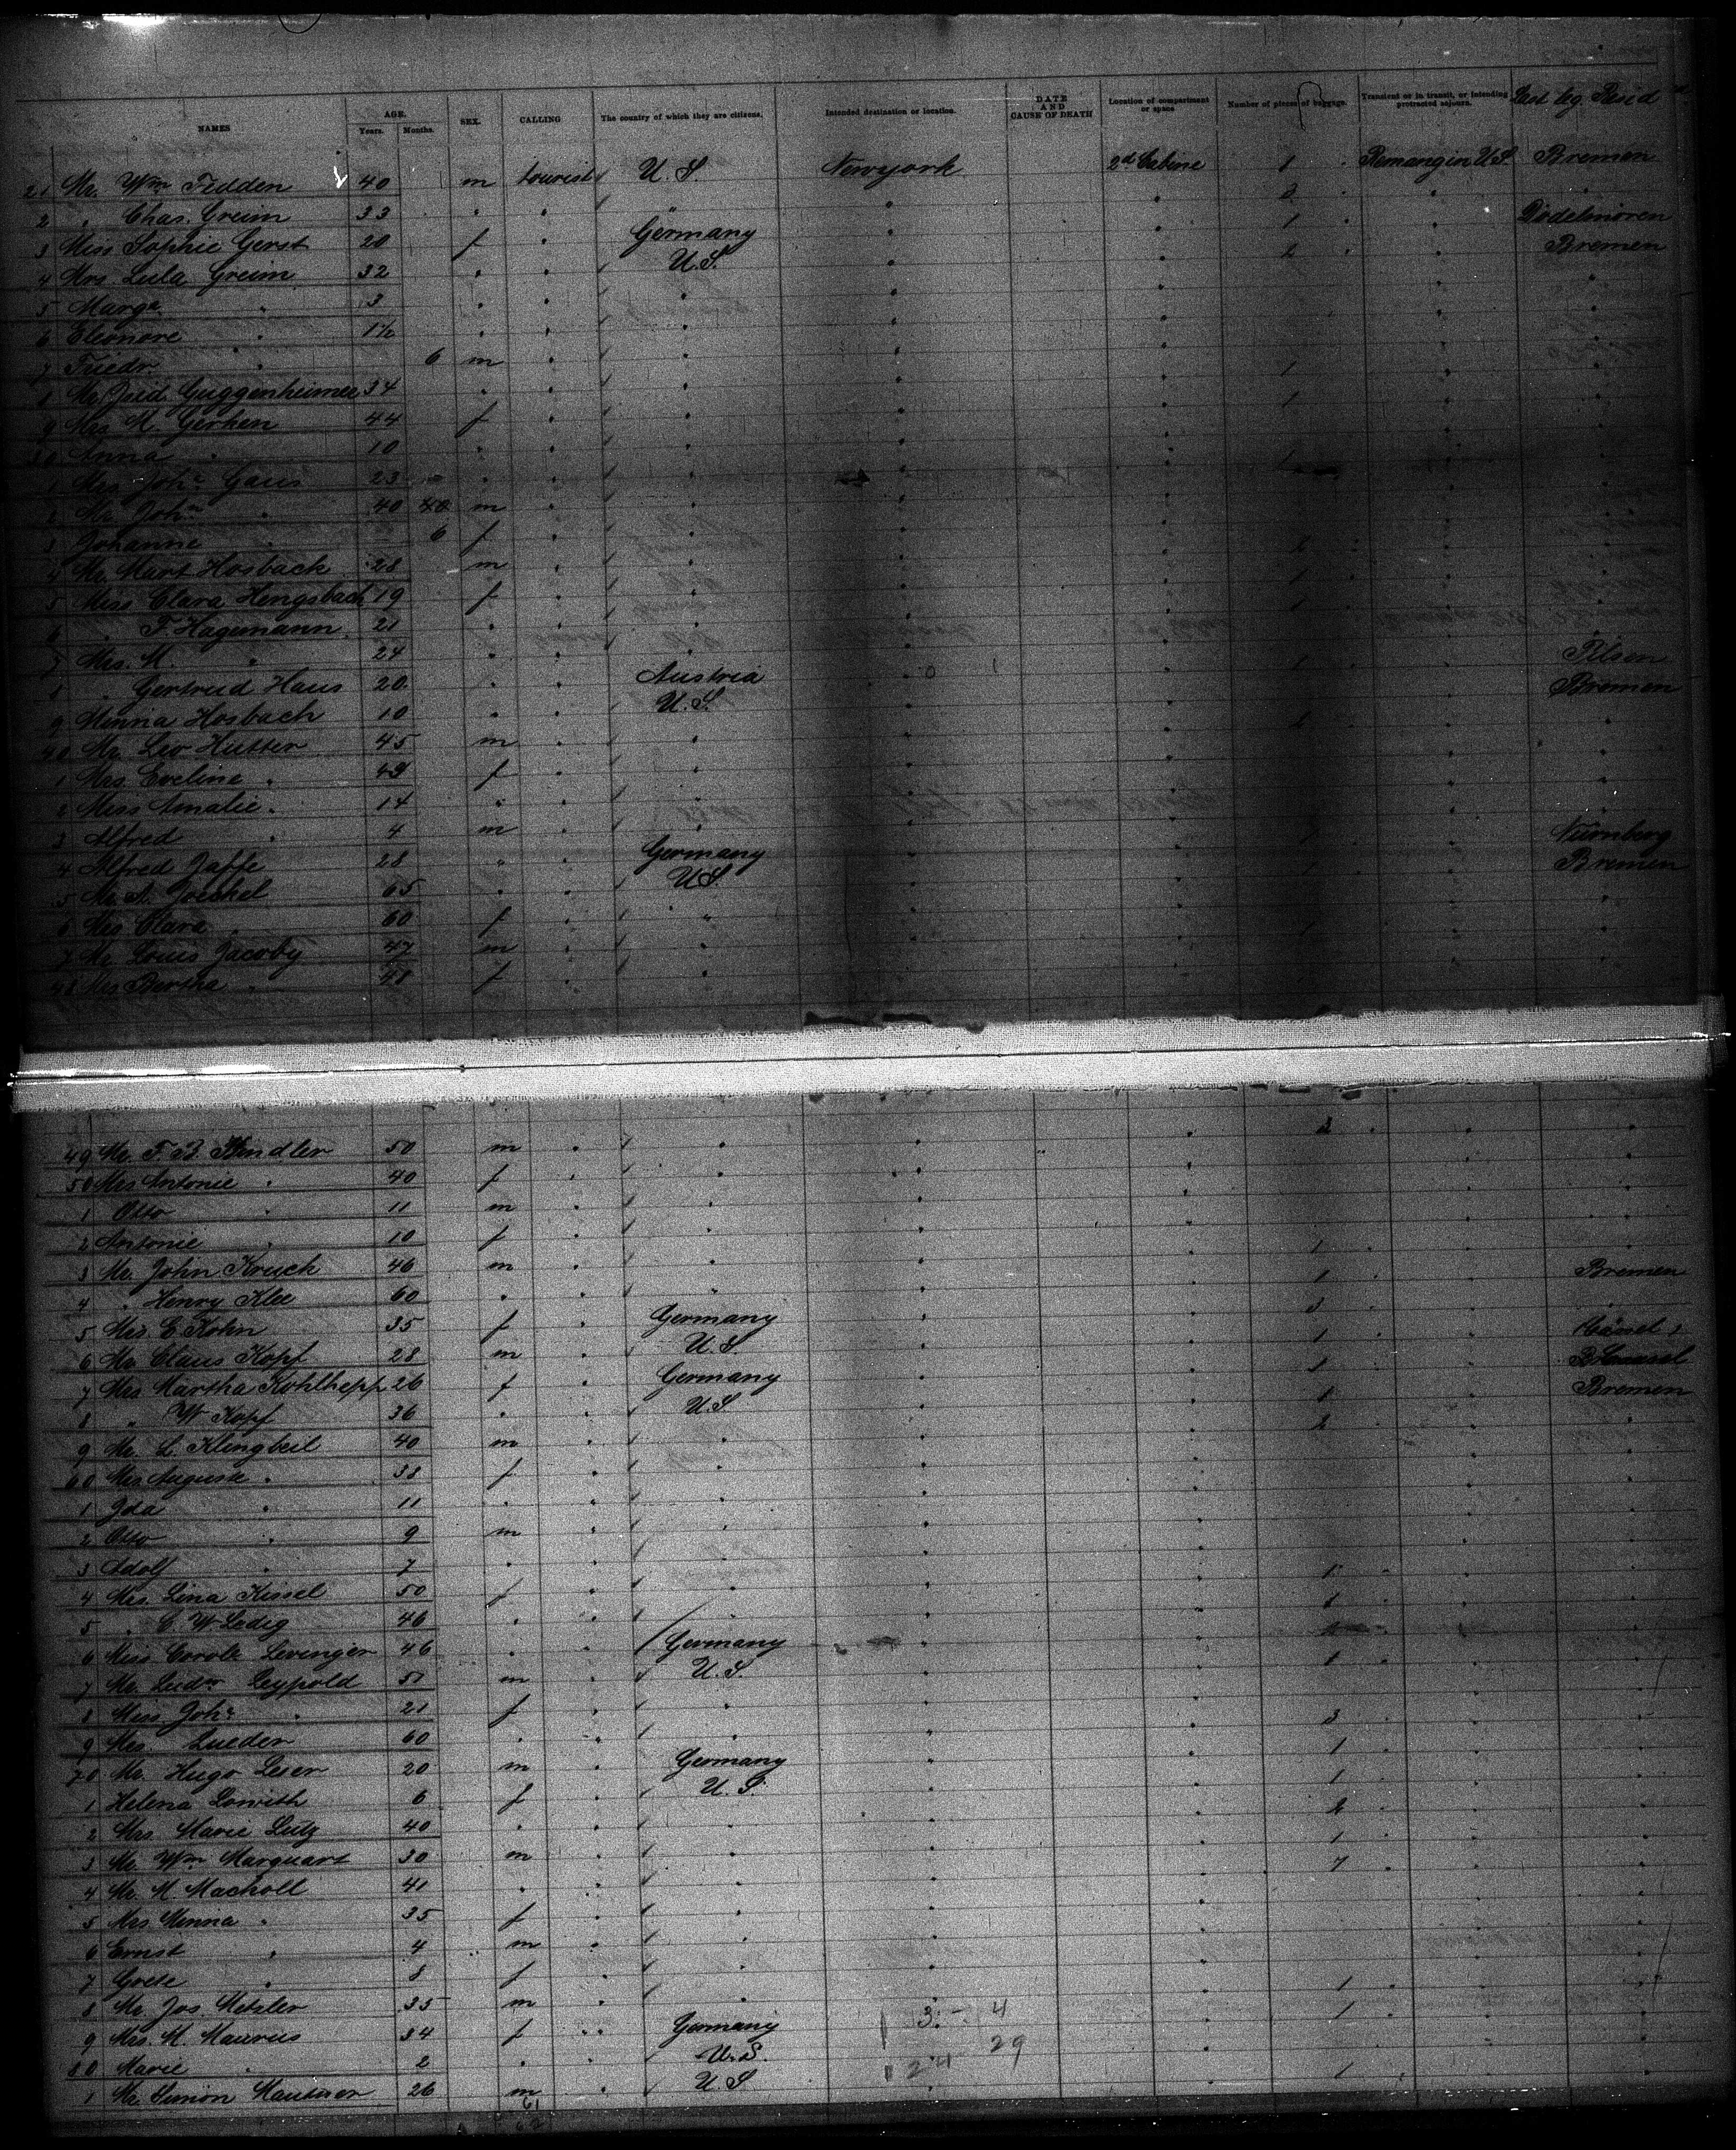 NAMES AGE. Years. Months. SEX. CALLING The country of which they are citizens. Intended destination or location. DATE AND CAUSE OF DEATH Location of compartment or space Number of pieces of baggage. Transient or in transit, or intending protracted sojourn. Last leg. Resid
21 Mr. Wm Fedden 40 m tourist U.S. Newyork 2d Cabine 1 Remang in U.S. Bremen
2 " Chas. Greim 33 " " " "
3 Miss Sophie Gerst 20 f " Germany " " 1
4 Mrs. Lula Greim 32 " " U.S. " " 2 Bremen
5 Marga " 3 " " " "
6 Eleonore " 1½ " " " "
7 Friedr " 6 m " " "
8 Mr. Fried. Guggenheimer 34 " " " " 1
9 Mrs M. Gerken 44 f " " " 1
30 Anna " 10 " " " "
1 Mrs. Joh. Gaus 23 " " " "
2 Mr. Joh. " 40 m " " "
3 Johanne " 6 f " " "
4 Mr. Mart Hosback 28 m " " "
5 Miss Clara Hengsbach 19 f " " " 1
6 " F. Hagemann 21 " " " " 1
7 Mrs. M. " 24 " " " "
8 " Gertrud Haus 20 " " Austria " 1 Pilsen
9 Minna Hosbach 10 " " U.S. " Bremen
40 Mr. Leo Hutter 45 m " " "
1 Mrs. Eveline " 49 f " " "
2 Miss Amalie " 14 " " " "
3 Alfred " 4 m " " "
4 Alfred Jaffe 28 " " Germany " 1 Nürnberg
5 Mr. A. Joeckel 65 " " U.S. " 1 Bremen
6 Mrs Clara " 60 f " " "
7 Mr. Louis Jacoby 47 m " " " 1
48 Mrs Bertha " 48 f " " "
49 Mr. F. B. Kindler 50 m " " "
50 Mrs Antonie " 40 f " " "
1 Otto " 11 m " " "
2 Antonie " 10 f " " "
3 Mr. John Kruck 46 m " " " 1
4 " Henry Klee 60 " " " " 1 Bremen
5 Mrs. E. Kohn 35 f " Germany " 3
6 Mr. Claus Kopf 28 m " U.S. " 1 Cassel
7 Mrs Martha Kohlhepp 26 f " Germany "
8 " W Kopf 36 " " U.S. " 1 Bremen
9 Mr. L Klingbeil 40 m " " " 2
60 Mrs Auguste " 38 f " " "
1 Ida " 11 " " " "
2 Otto " 9 m " " "
3 Adolf " 7 " " " "
4 Mrs. Lina Kissel 50 f " " " 1
5 " C. W Ledig 46 " " " "
6 Miss Carole Levinger 46 " " Germany "
7 Mr. Ludw Leypold 51 m " U.S. " 1
8 Miss Joh. " 21 f " " "
9 Mrs. Lueder 60 " " " " 3
70 Mr. Hugo Leser 20 m " Germany " 1
1 Helena Lowith 6 f " U.S. " 1
2 Mrs. Marie Lutz 40 " " " " 2
3 Mr. Wm Marquart 30 m " " " 1
4 Mr. M. Macholl 41 " " " " 7
5 Mrs Minna " 35 f " " "
6 Ernst " 4 m " " "
7 Grete " 8 f " " "
8 Mr. Jos. Metzler 35 m " " " 1
9 Mrs. M. Maurus 34 f " Germany 3 - 4 1
80 Marie " 2 " " U.S. 29
1 Mr. Simon Mautner 26 m " U.S 1
61